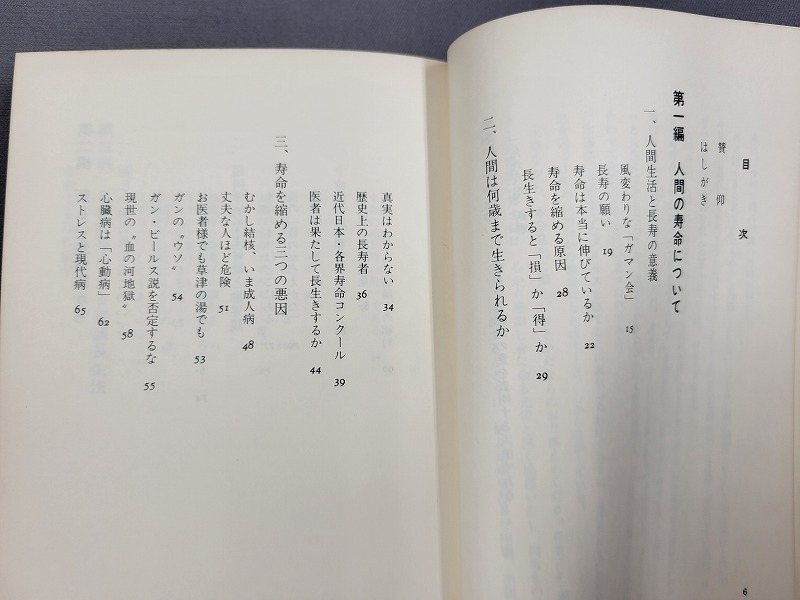 目次
賛仰
はしがき
第一編 人間の寿命について
一、人間生活と長寿の意義
風変わりな「ガマン会」 15
長寿の願い 19
寿命は本当に伸びているか 22
寿命を縮める原因 28
長生きすると「損」か「得」か 29
二、人間は何歳まで生きられるか
6
真実はわからない 34
歴史上の長寿者 36
近代日本・各界寿命コンクール 39
医者は果たして長生きするか 44
三、寿命を縮める三つの悪因
むかし結核、いま成人病 48
丈夫な人ほど危険 51
お医者様でも草津の湯でも 53
ガンの〝ウソ〟 54
ガン・ビールス説を否定するな 55
現世の〝血の河地獄〟 58
心臓病は「心動病」 62
ストレスと現代病 65